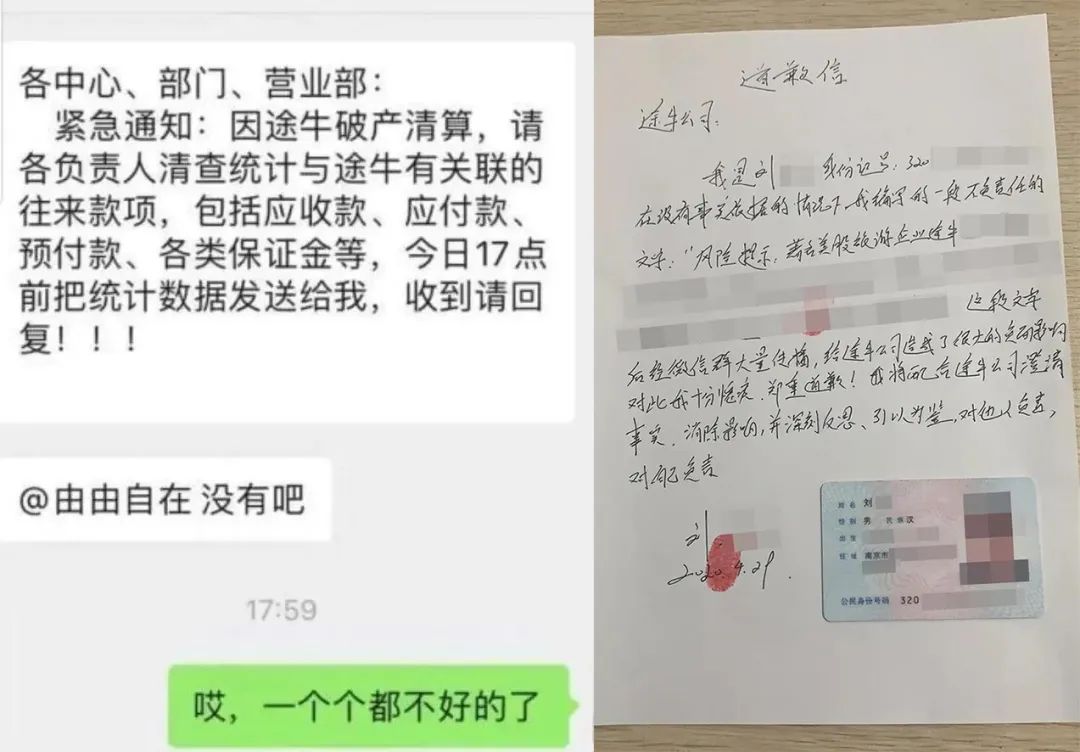 各中心、部门、营业部：
紧急通知：因途牛破产清算，请
各负责人清查统计与途牛有关联的
往来款项，包括应收款、应付款、
预付款、各类保证金等，今日17点
前把统计数据发送给我，收到请回
复！！！
@由由自在 没有吧
17:59
哎，一个个都不好的了
道歉信
途牛公司：
我是刘 身份证号：320
在没有事实依据的情况下，我编写的一段不负责任的
文字："风险提示，著名美股旅游企业途牛
这段文字
后经微信群大量传播，给途牛公司造成了很大的负面影响
对此我十分愧疚，郑重道歉！我将配合途牛公司澄清
事实，消除影响，并深刻反思、引以为鉴，对他人负责，
对自己负责
刘
2020.4.29.
姓名 刘
性别 男 民族 汉
出生
住址 南京市
公民身份号码 320